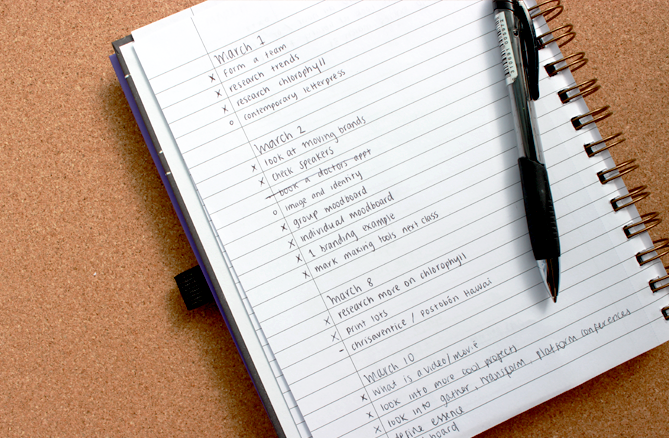 March 1
x form a team
x research trends
x research chlorophyll
o contemporary letterpress
March 2
x look at moving brands
x check speakers
– book a doctors appt
o image and identity
x group moodboard
x individual moodboard
x 1 branding example
x mark making tools next class
March 8
x research more on chlorophyll
x print lots
– chrisaventice / postobón Hawai
March 10
x what is a video/merit
x look into more cool projects
x look into gather, transform, platform conferences
define essence
board